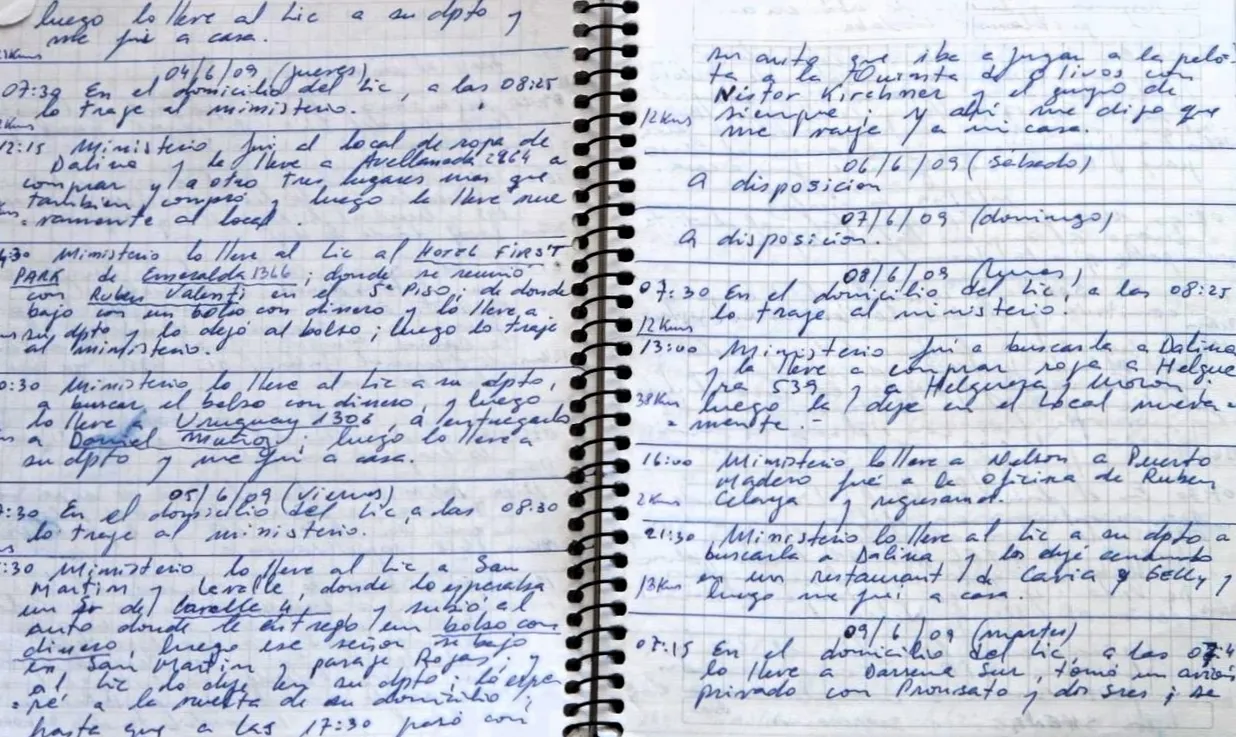 luego lo lleve al Lic a su dpto y
me fui a casa.
04/6/09 (jueves)
07:30 En el domicilio del Lic, a las 08:25
lo traje al ministerio.
12:15 Ministerio fui al local de ropa de
Dalina y la lleve a Avellaneda 2964 a
comprar y a otro tres lugares mas que
tambien compró y luego la lleve nue
= vamente al local.
:30 Ministerio lo lleve al Lic al HOTEL FIRST
PARK de Esmeralda 1366; donde se reunió
con Ruben Valenti en el 5º PISO; de donde
bajo con un bolso con dinero y lo lleve a
su dpto y lo dejó al bolso; luego lo traje
al ministerio.
0:30 Ministerio lo lleve al Lic a su dpto,
a buscar el bolso con dinero, y luego
lo lleve a Uruguay 1306, a entregarlo
a Daniel Muñoz; luego lo lleve a
su dpto y me fui a casa.
05/6/09 (viernes)
:30 En el domicilio del Lic, a las 08:30
lo traje al ministerio.
:30 Ministerio lo lleve al Lic a San
Martin y Lavalle, donde lo esperaba
un Sr de Lavalle y subió al
auto donde le entregó un bolso con
dinero, luego ese señor se bajo
en San Martin y pasaje Rojas; y
al Lic lo deje en su dpto; lo espe
= ré a la vuelta de su domicilio,
hasta que a las 17:30 pasó con
su auto que iba a jugar a la pelo=
ta a la Quinta de Olivos con
Nestor Kirchner y el grupo de
12Kms siempre; y ahí me dijo que
me vaya a mi casa.
06/6/09 (sábado)
A disposicion
07/6/09 (domingo)
A disposicion.
08/6/09 (lunes)
07:30 En el domicilio del Lic, a las 08:25
12Kms lo traje al ministerio.
13:00 Ministerio fui a buscarla a Dalina
y la lleve a comprar ropa a Helgue
ra 539 y a Helguera y Moron.
38Km luego la deje en el local nueva=
= mente.-
16:00 Ministerio lo lleve a Nelson a Puerto
Madero fué a la oficina de Ruben
2Kms y regresamos.
21:30 Ministerio lo lleve al Lic a su dpto a
buscarla a Dalina y los dejé cenando
13Kms en un restaurant de Cavia y Gelly y
luego me fui a casa.
09/6/09 (martes)
07:15 En el domicilio del Lic a las
lo lleve a Darsena Sur, tomó un avión
privado con y dos sres; se